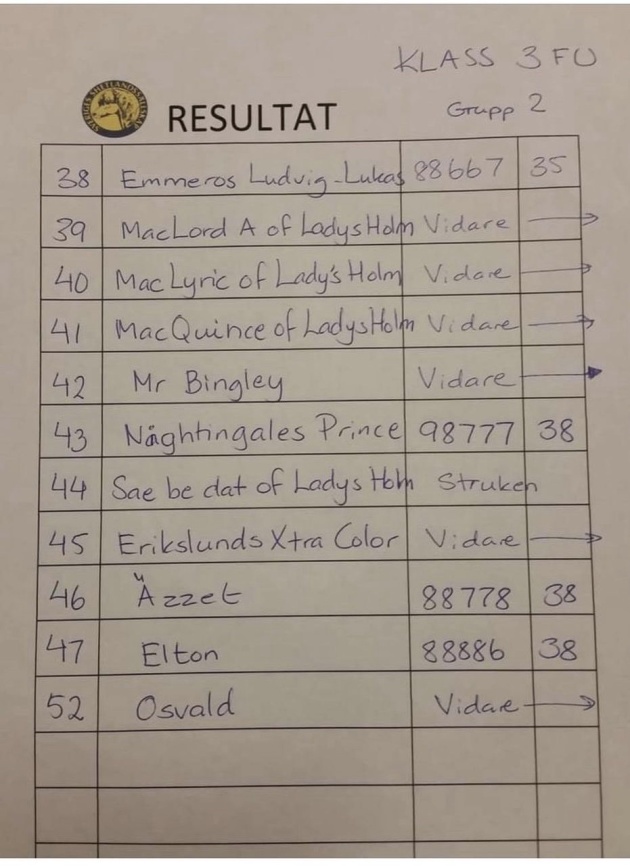 KLASS 3 FU
RESULTAT Grupp 2
38 Emmeros Ludvig-Lukas 88667 35
39 MacLord A of Ladys Holm Vidare →
40 Mac Lyric of Lady's Holm Vidare →
41 MacQuince of Ladys Holm Vidare →
42 Mr Bingley Vidare →
43 Någhtingales Prince 98777 38
44 Sae be dat of Ladys Holm Struken
45 Erikslunds Xtra Color Vidare →
46 Äzzet 88778 38
47 Elton 88886 38
52 Osvald Vidare →